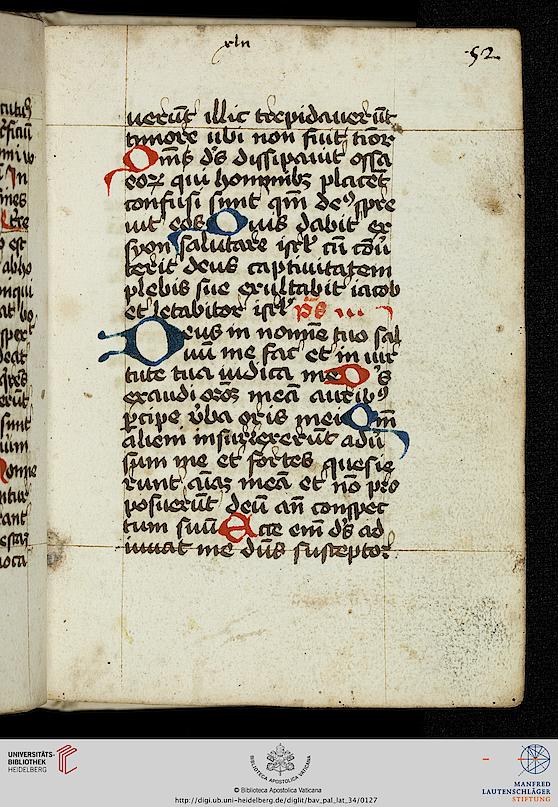 xlii
52
uerūt illic trepidauerūt
timore ubi non fuit tīor
Qm̄s d̄s dissipauit ossa
eoꝝ qui hominibꝫ placēt
confusi sunt qm̄ deꝰ spre
uit eos Quis dabit ex
syon salutare isrl̄ cū cōu
terit deus captiuitatem
plebis sue exultabit iacob
et letabitor isrl̄ p̄s
Deus in nomīe tuo sal
uū me fac et in uir
tute tua iudica me D̄s
exaudi orōꝫ meā auribꝰ
ꝑcipe v̄ba oris mei Qm̄
alieni insurrexerūt aduͥ
sum me et fortes quesie
runt aīaꝫ meā et nō pro
posuerūt deū an̄ conspec
tum suū Ecce em̄ d̄s ad
iuuat me dn̄s susceptor
UNIVERSITÄTS-
BIBLIOTHEK
HEIDELBERG
BIBLIOTECA APOSTOLICA VATICANA
© Biblioteca Apostolica Vaticana
http://digi.ub.uni-heidelberg.de/diglit/bav_pal_lat_34/0127
MANFRED
LAUTENSCHLÄGER
STIFTUNG